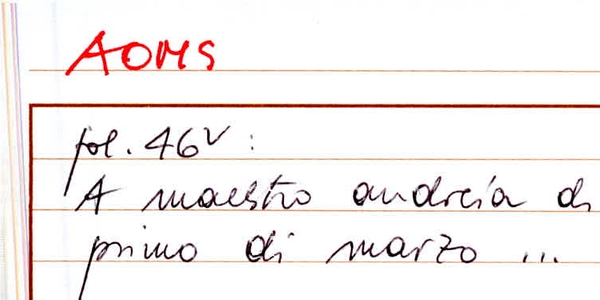 AOMS
fol. 46v :
A maestro andreia di
primo di marzo ...